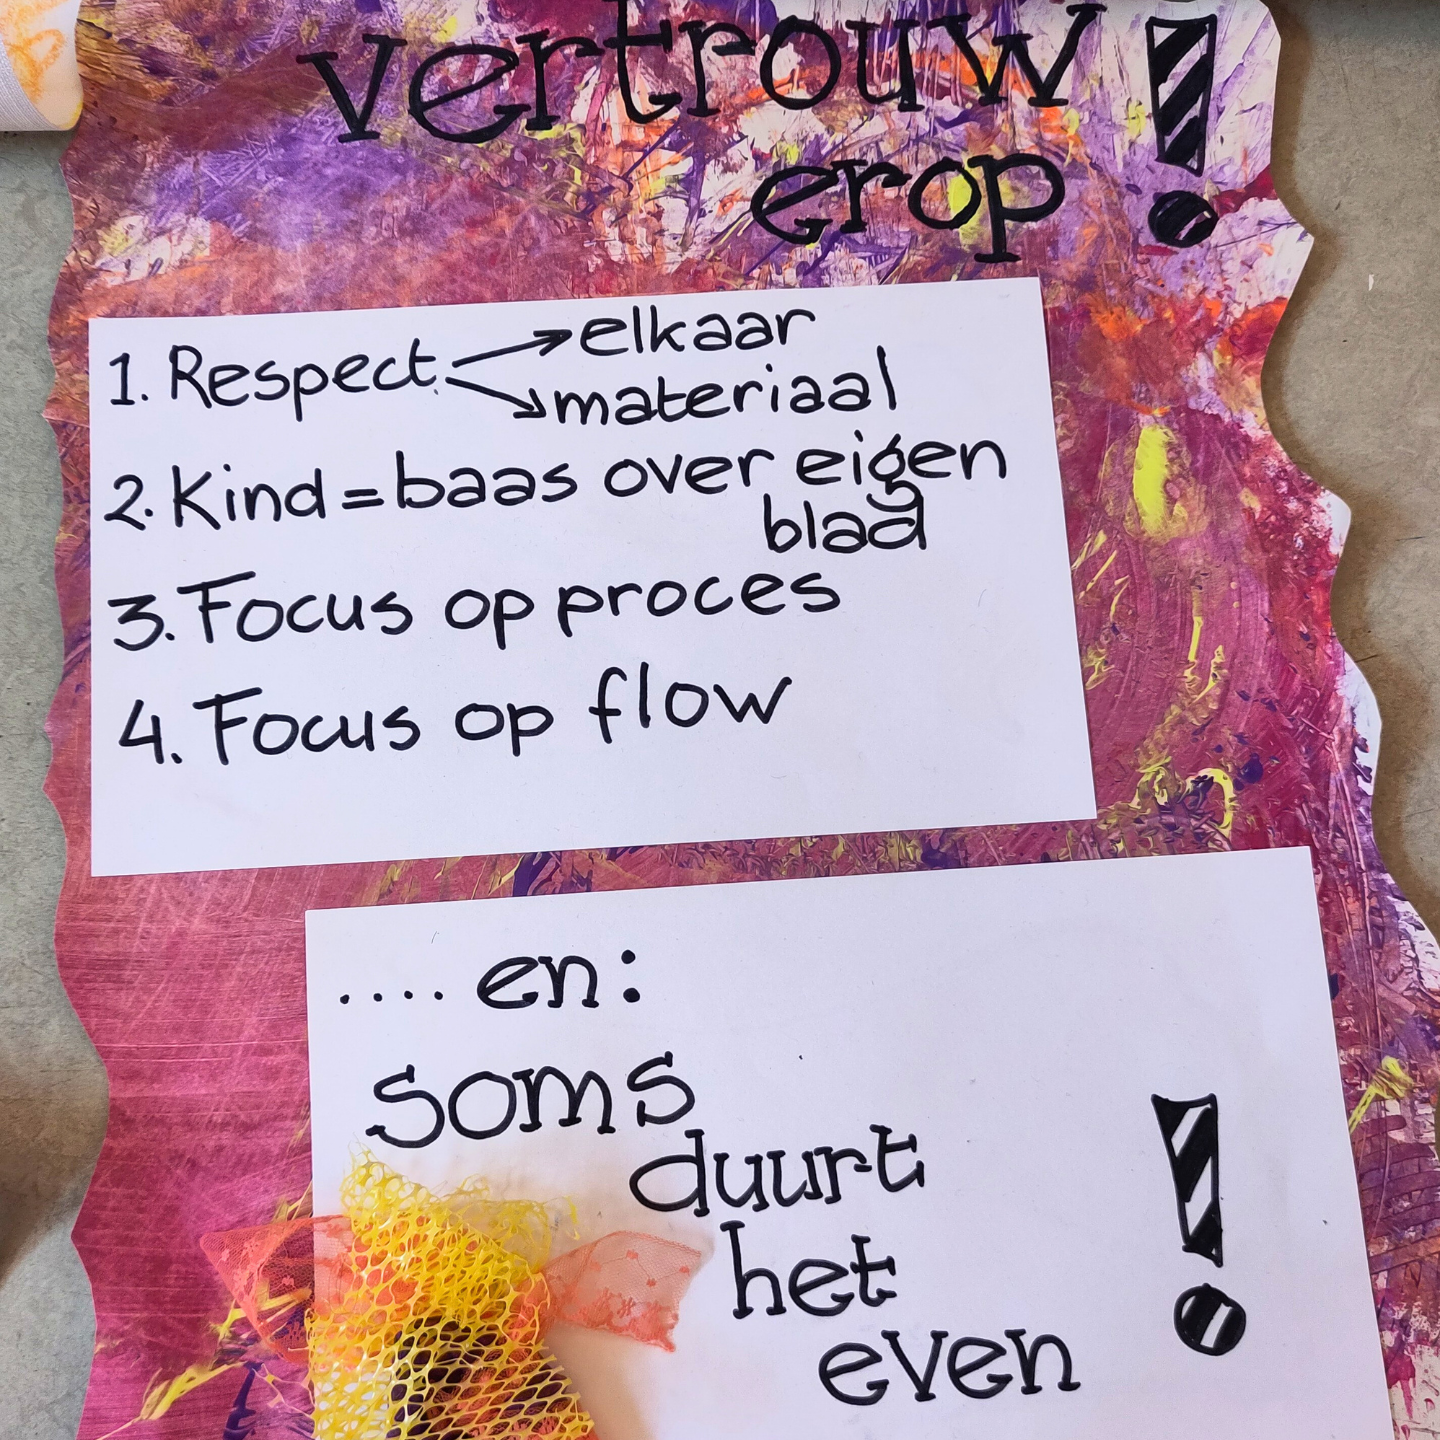 vertrouw
erop !
1. Respect → elkaar
→ materiaal
2. Kind = baas over eigen
blad
3. Focus op proces
4. Focus op flow
.... en:
soms
duurt
het
even !